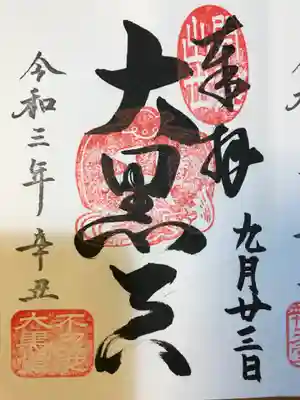 奉拝
九月廿三日
大黒天
令和三年辛丑